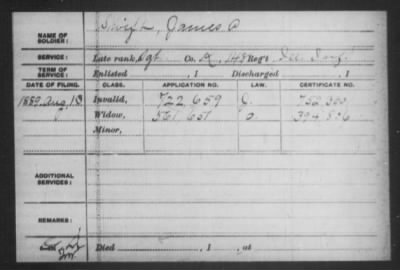 NAME OF SOLDIER: Swift, James
SERVICE: Late rank, Sgt Co. 148 Reg't Ill. Inf.
TERM OF SERVICE: Enlisted , 1 Discharged , 1
DATE OF FILING. CLASS. APPLICATION NO. LAW. CERTIFICATE NO.
1889 Aug. 13 Invalid, 722.659 J.
Widow, 561.651
Minor,
ADDITIONAL SERVICES:
REMARKS:
Died , 1 , at